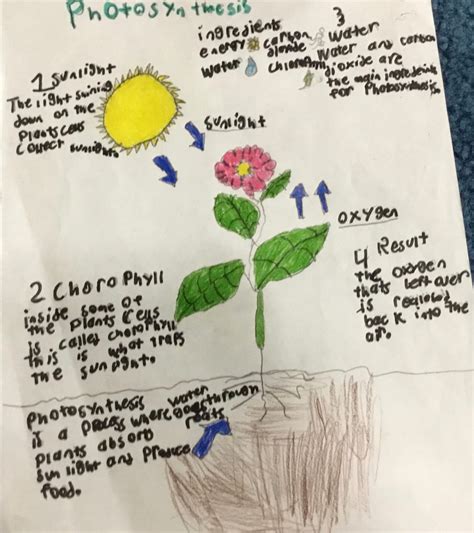 Photosynthesis
ingredients
energy carbon
dioxide water
water chloroPhyll
3
water
water and carbon
dioxide are
the main ingredients
for Photosynthesis
1 sunlight
The light shining
down on the
Plants cells
collect sunlight.
sunlight
oxygen
2 ChoroPhyll
inside some of
the plants cells
is called chorophyll
this is what traps
the sunlight.
4 Result
the oxygen
thats left over
is
back into the
air.
Photosynthesis
is a Process where
Plants absorb
sun light and Produce
food.
water
goes through
roots